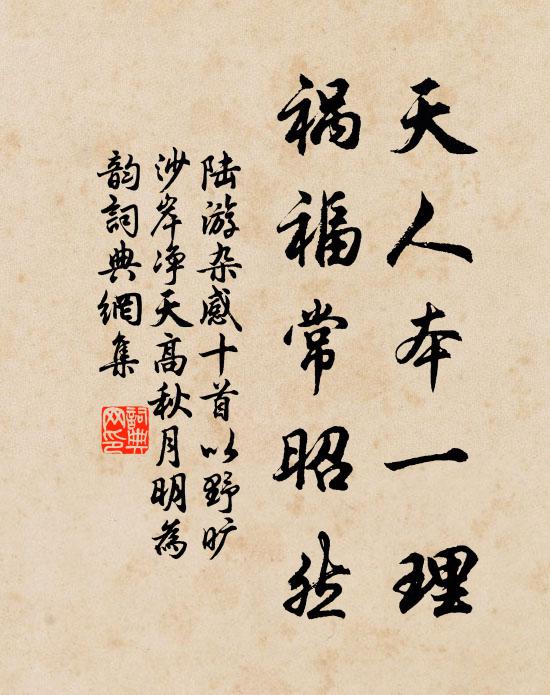 天人本一理
祸福常昭然
陆游杂感十首以野旷
沙岸净天高秋月明为
韵詞典網集
詞典网印